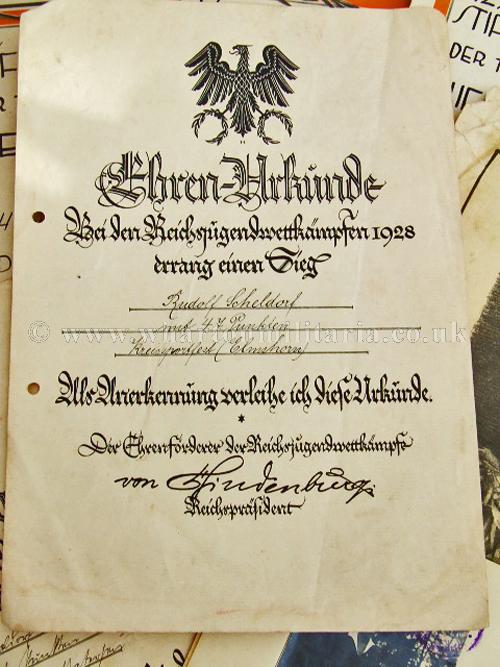 Ehren-Urkunde
Bei den Reichsjugendwettkämpfen 1928
errang einen Sieg
Rudolf Scheldorf
mit 47 Punkten
Kreissportfest (Elmshorn)
© www.whartonmilitaria.co.uk
Als Anerkennung verleihe ich diese Urkunde.
*
Der Ehrenförderer der Reichsjugendwettkämpfe
von Hindenburg.
Reichspräsident
STIF
DER T